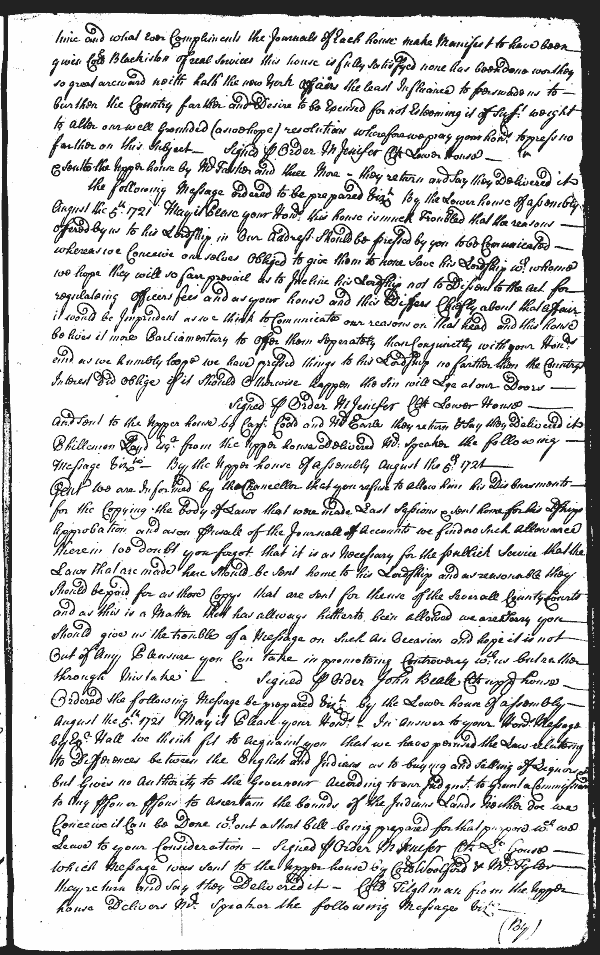 time and what ever Compliments the Journals of Each house make Manifest to have been
given Coll Blackiston of real Services this house is fully Satisfyed none has been done worthy
so great a reward neith hath the new York affairs the least Influence to perswade us to
burthen the Country farther and Desire to be Excused for not Esteeming it of Suft. weight
to alter our well Grounded (as we hope) resolutions wherefore we pray your honrs. to press no
farther on this Subject — Signed P Order M Jenifer Clk Lower house —
Sent to the upper house by Mr and three More — they return and Say they Delivered it
the following Message ordered to be prepared Vizt. By the Lower house of assembly
August the 5th. 1721 May it Please your Honrs. this house is much Troubled that the reasons
offered by us to his Lordship in Our Address Should be pressed by you to be Comunicated —
whereas we Conceive our selves Obliged to give them to none Save his Lordship wth. whome
we hope they will so farr prevail as to Incline his Lordship not to Dissent to the Act for
regulateing officers fees and as your house and this Differs Chiefly about that affair
it would be Imprudent as we think to Comunicate our reasons on that head and this house
beleives it more Parliamentary to offer them Seperately than Conjunctly with your Honrs.
and as we humbly hope we have pressed things to his Lordship no farther than the Countrys
Interest Did oblige if it Should Otherwise happen the Sin will Lye at our Doors —
Signed P Order M Jenifer Clk Lower House —
And sent to the upper house by Capt. Coad and Mr Earle they return & Say they Delivered it
Philemon Loyd Esqr. from the upper house delivered Mr. Speaker the following —
Message Vizt. — By the upper house of Assembly August the 5th. 1721 —
Gent we are Informed by the Chancellor that you refuse to allow him his Disbursments
for the Copying the Body of Laws that were made Last Sessions & sent home for his Ldships
Approbation and as on Perusale of the Journall of Accounts we find no Such allowance
therein we Doubt you forgot that it is as Necessary for the publick Service that the
Laws that are made here Should be sent home to his Lordship and as reasonable they
Should be paid for as those Copys that are sent for the use of the Severall County Courts
and as this is a Matter that has allways hitherto been allowed we are Sorry you
Should give us the trouble of a Message on Such an Occasion and hope it is not
Out of Any Pleasure you Can take in promoteing Controversy wth. us but rather
through Mistake — Signed P Order John Beale Clk upp house
Ordered the following Message be prepared Vizt. by the Lower house of assembly
August the 5th. 1721 May it Please your Honrs. — In Answer to your Message
by Hall we think fit to Acquaint you that we have perused the Law relateing
to Differences between the English and Indians as to buying and Selling of Liquors
but Gives no Authority to the Governour According to our Judgmt. to grant a Commission
to any Pson or Psons to ascertain the bounds of the Indians Lands neither doe we
Conceive it Can be Done wth.out a Short bill being prepared for that purpose wch. we
Leave to your Consideration — Signed P Order M Jenifer Clk Lo. house —
which Message was sent to the upper house by Coll Woolford & Mr. Tyler
they return and Say they Delivered it — Coll Tilghman from the upper
house Delivers Mr. Speaker the following Message Vizt. —
(By)